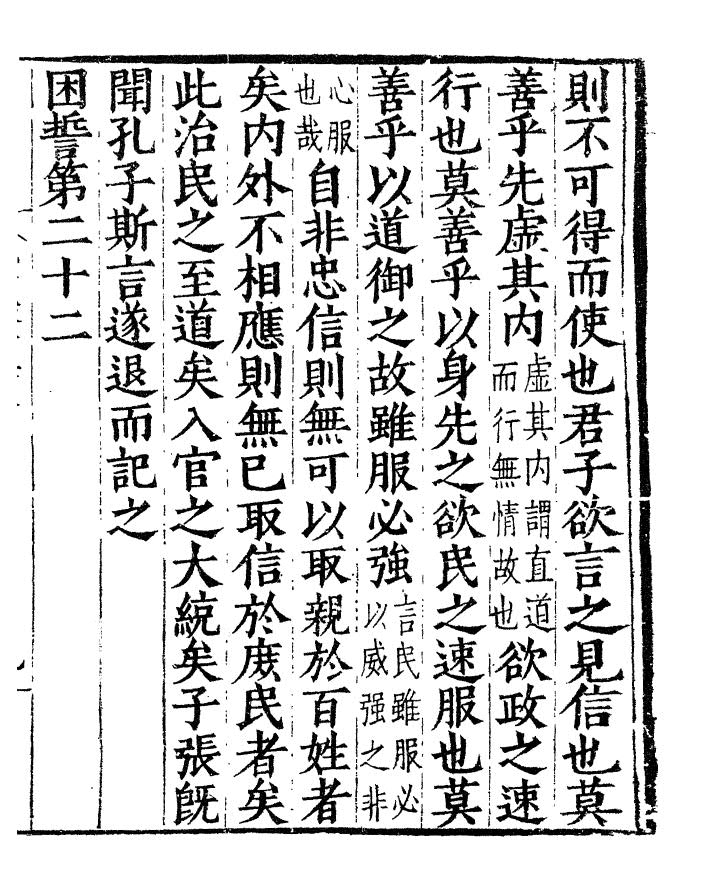 則不可得而使也君子欲言之見信也莫
善乎先虛其內虛其内謂直道而行無情故也欲政之速
行也莫善乎以身先之欲民之速服也莫
善乎以道御之故雖服必強言民雖服必以威强之非
心服也哉自非忠信則無可以取親於百姓者
矣内外不相應則無已取信於庻民者矣
此治民之至道矣入官之大統矣子張旣
聞孔子斯言遂退而記之
困誓第二十二